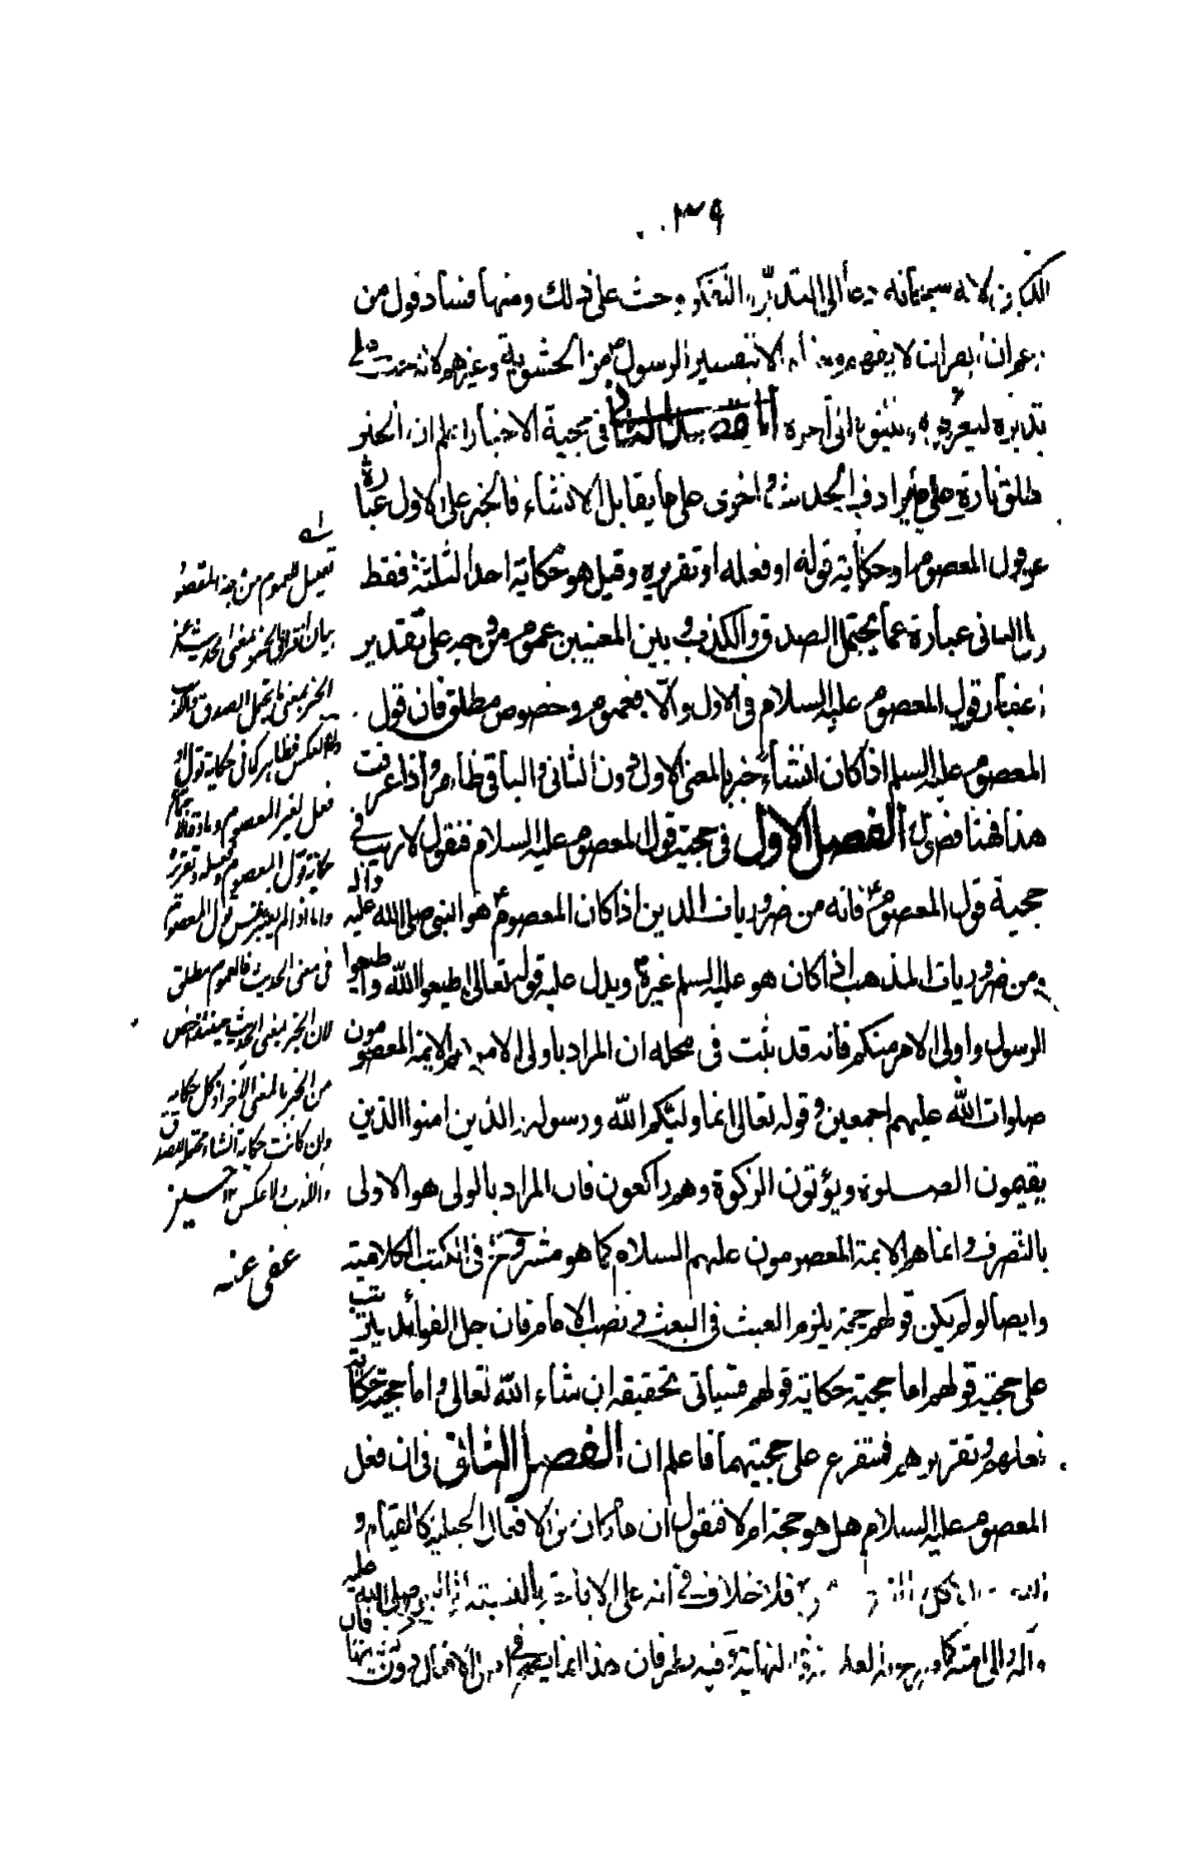 ٣٩
لانه سبحانه دعا الى التدبّر والتفكر وحث على ذلك ومنها فساد قول من
القرآن لا يفهم الا بتفسير الرسول ص من الحشوية وغيرهم لانه حث على
تدبره ليعرفوه فى حجية الاخبار اعلم ان الخبر
يطلق تارة على ما يرادف الحديث واخرى على ما يقابل الانشاء فالخبر على الاول عبارة
عن قول المعصوم او حكاية قوله او فعله او تقريره وقيل هو حكاية احد الثلثة فقط
وعلى الثانى عبارة عما يحتمل الصدق والكذب وبين المعنيين عموم من وجه على تقدير
اعتبار قول المعصوم عليه السلام فى الاول والّا فعموم وخصوص مطلق فان قول
المعصوم عليه السلم اذا كان انشاء خبر بالمعنى الاول دون الثانى والباقى ظاهر واذا عرفت
هذا فهنا فصول الفصل الاول فى حجية قول المعصوم عليه السلام فنقول لا ريب فى
حجية قول المعصوم ع فانه من ضروريات الدين اذا كان المعصوم ع هو النبى صلى الله عليه واله
ومن ضروريات المذهب اذا كان هو عليه السلم غيره ويدل عليه قوله تعالى اطيعوا الله واطيعوا
الرسول واولى الامر منكم فانه قد ثبت فى محله ان المراد باولى الامر هم الائمة المعصومون
صلوات الله عليهم اجمعين وقوله تعالى انما وليكم الله ورسوله والذين امنوا الذين
يقيمون الصلوة ويؤتون الزكوة وهم راكعون فان المراد بالولى هو الاولى
بالتصرف وانما هم الائمة المعصومون عليهم السلام كما هو مشروح فى الكتب الكلامية
وايضا لو لم يكن قولهم حجة يلزم العبث فى البعث ونصب الامام فان جل الفوائد يترتب
على حجية قولهم اما حجية حكاية قولهم فسيأتى تحقيقه ان شاء الله تعالى واما حجية حكاية
فعلهم وتقريرهم فمتفرع على حجيتهما فاعلم ان الفصل الثانى فى ان فعل
المعصوم عليه السلام هل هو حجة ام لا فنقول ان ما كان من الافعال الجبلية كالقيام و
فلا خلاف فى انه على الاباحة بالنسبة صلى الله عليه
وآله والى امته كما فى النهاية وفيه نظر فان هذا انما يصح فى الافعال دون فان
تعليل للعموم من جهة المقصود
بيان افتراق الخبر بمعنى الحديث عن
الخبر بمعنى ما يحتمل الصدق والكذب
واما العكس فظاهر كما فى حكاية قول او
فعل لغير المعصوم
حكاية قول المعصوم وفعله وتقريره
واما اذا لم يعتبر قول المعصوم
فى معنى الحديث فالعموم مطلق
لان الخبر بمعنى الحديث حينئذ اخص
من الخبر بالمعنى الآخر اذ كل حكاية
وان كانت حكاية انشاء محتملة للصدق
والكذب ولا عكس ١٢ حسين
عفى عنه